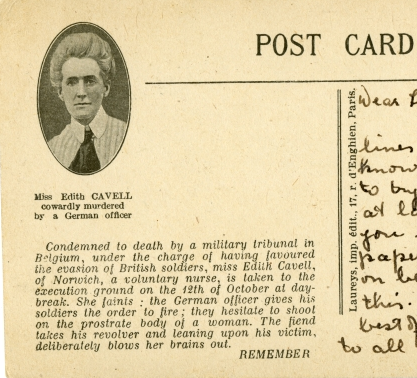 POST CARD
Miss Edith CAVELL
cowardly murdered
by a German officer
Condemned to death by a military tribunal in
Belgium, under the charge of having favoured
the evasion of British soldiers, miss Edith Cavell,
of Norwich, a voluntary nurse, is taken to the
execution ground on the 12th of October at day-
break. She faints : the German officer gives his
soldiers the order to fire ; they hesitate to shoot
on the prostrate body of a woman. The fiend
takes his revolver and leaning upon his victim,
deliberately blows her brains out.
REMEMBER
Laureys, imp. édit., 17, r. d'Enghien, Paris.
Dear
lines
know
to bu
at l
you
pape
on be
this.
best of
to all